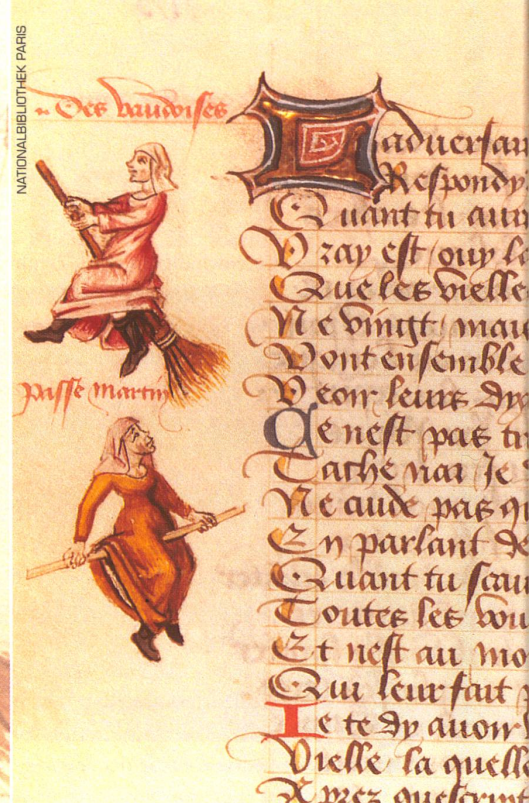 NATIONALBIBLIOTHEK PARIS
Des vaudoises
passe martin
Ladversair
Respondy
Quant tu aur
Vray est ouy le
Que les vielle
Ne vingt mau
Vont ensemble
Veoir leurs dya
Ce nest pas tr
Tache nai Je
Ne cuide pas qu
En parlant de
Quant tu scau
Toutes les vou
Et nest au mo
Qui leur fait
Je te dy avoir
Vielle la quelle
Aprez que